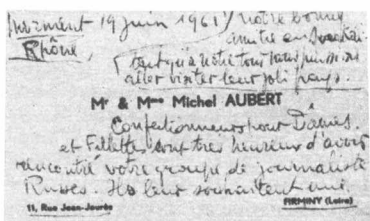 19 juin 1961
notre bonne
Rhône,
aller visiter leur joli pays.
Mr & Mme Michel AUBERT
Confectionneurs pour Dames
et Fillettes sont très heureux d'avoir
rencontré votre groupe de journaliste
Russes. Ils leur souhaitent
11, Rue Jean-Jaurès FIRMINY (Loire)